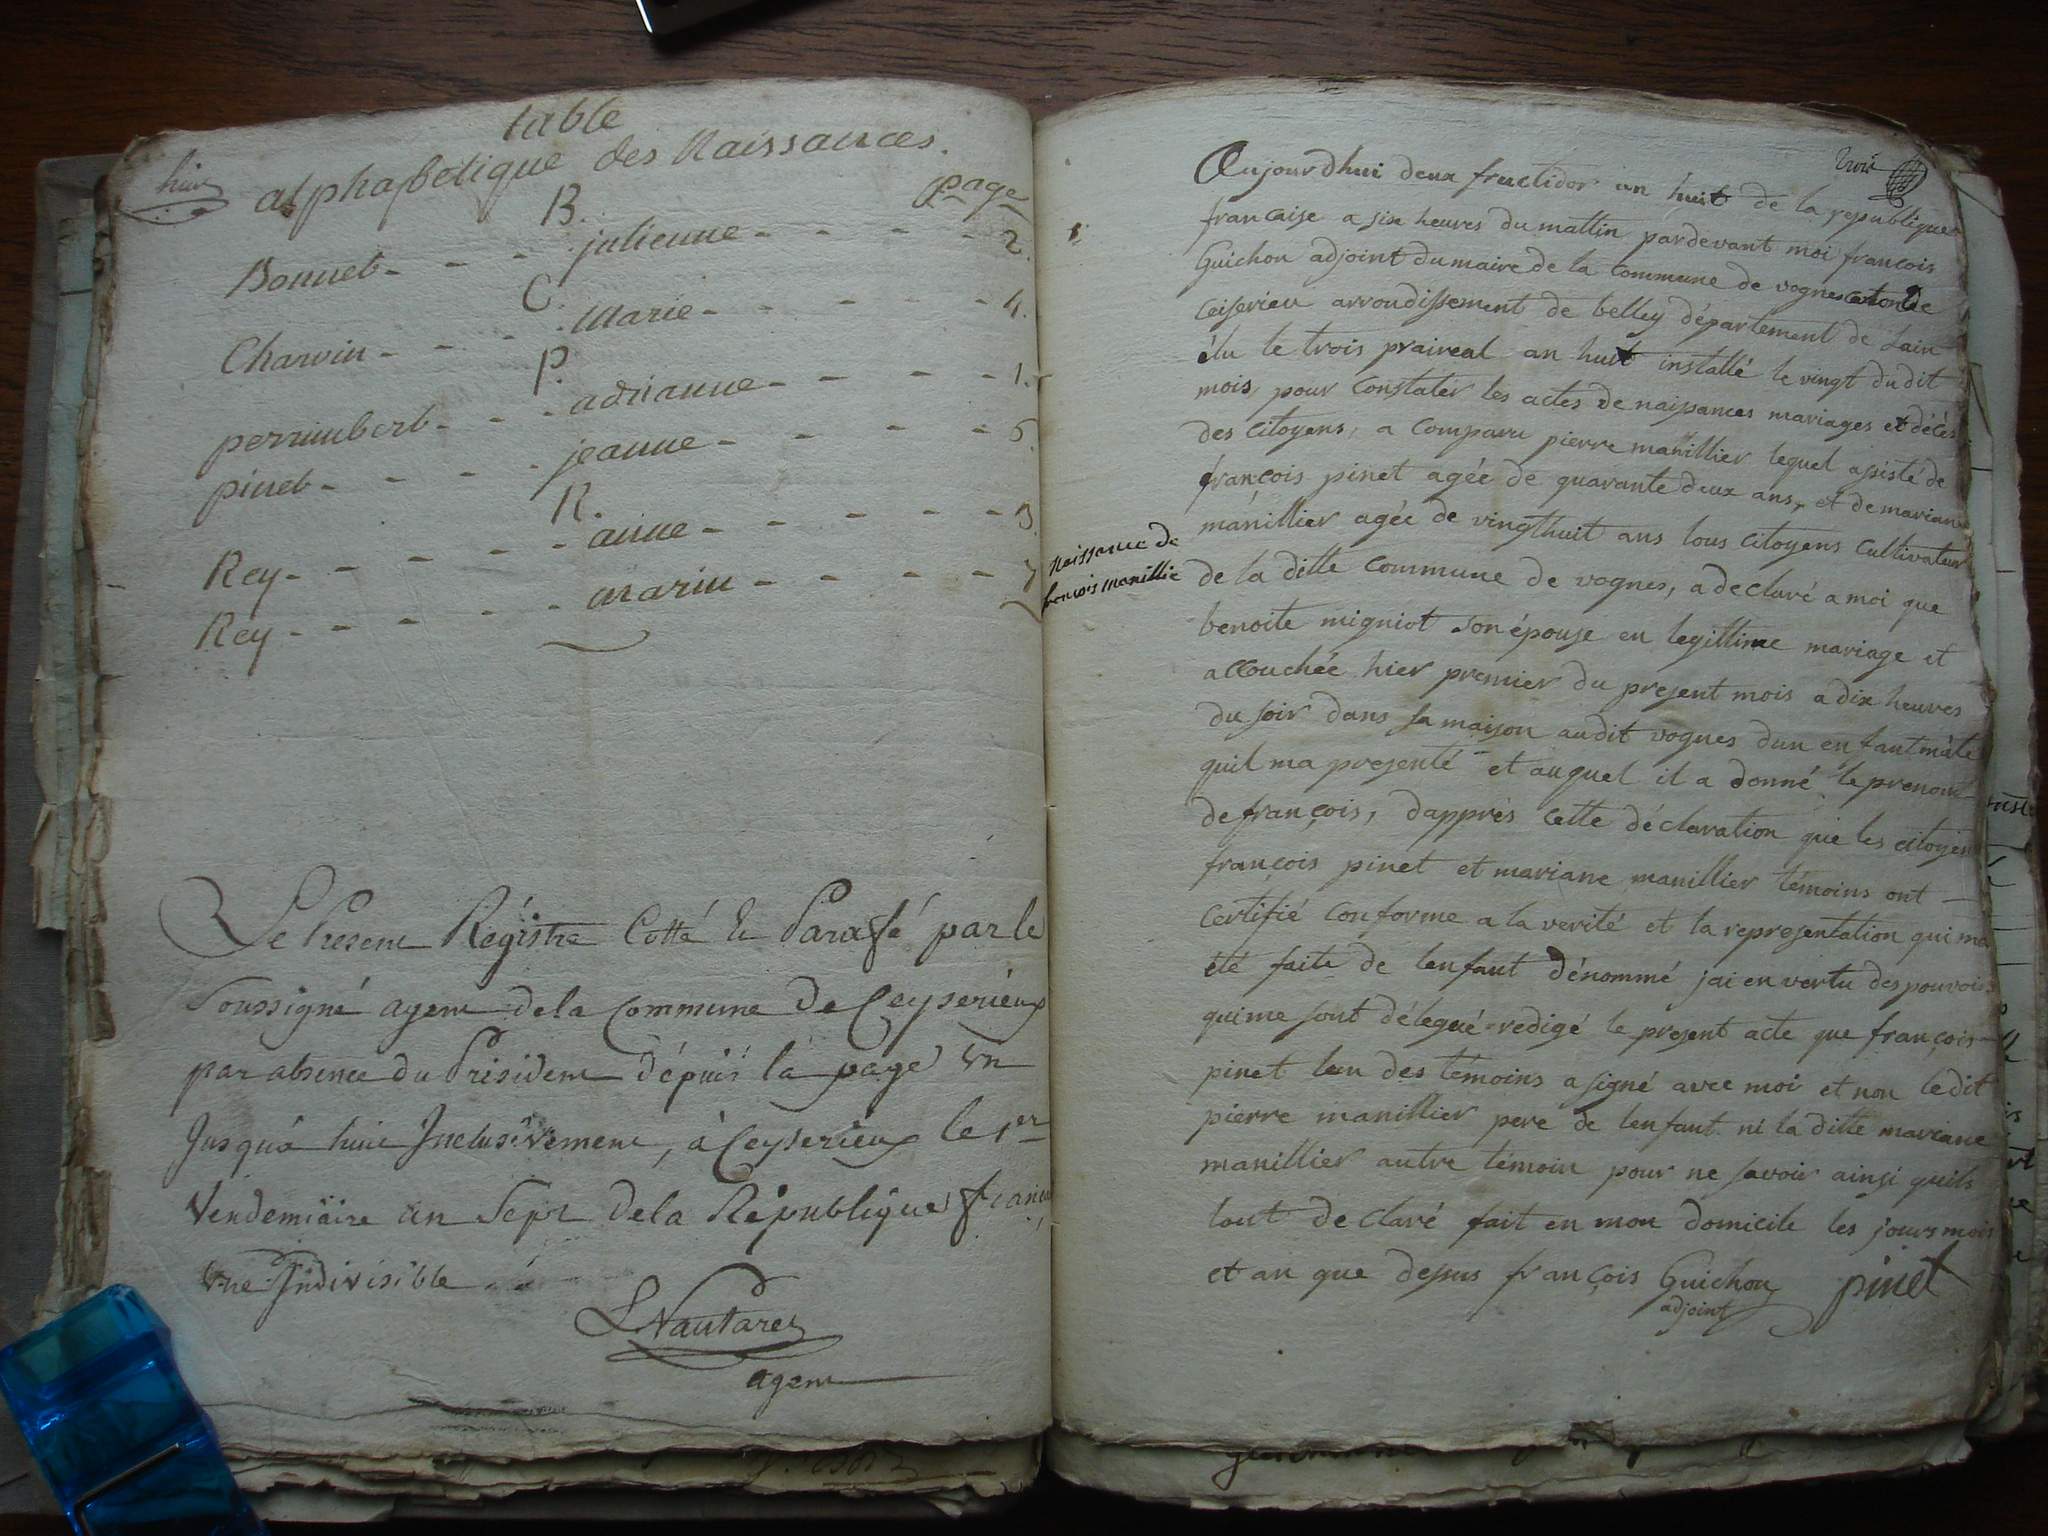 huit
table
alphabetique des Naissances.
page
B.
Bonnet - - - julienne - - - - 2.
C.
Charvin - - - Marie - - - - 4.
P.
perrimbert - - - adrianne - - - - 1.
pinet - - - jeanne - - - - 6.
R.
Rey - - - - - anne - - - - - 3
Rey - - - - - marin - - - - 7
Le Present Régistre Cotté Et Paraffé par le
Soussigné agent de la Commune De Ceyserieux
par absence du President dépuis la page un
Jusqua huit Inclusivement, à Ceyserieux le 1er
Vendemiaire an Sept de la Republique
Une Indivisible
Nautarez
agent
Aujourdhui deux fructidor an huit de la republique
francaise a six heures du mattin pardevant moi francois
Guichon adjoint du maire de la commune de vognes
Ceiserieu arrondissement de belley département de Lain
élu le trois praireal an huit installé le vingt dudit
mois, pour Constater les actes de naissances mariages et décès
des Citoyens, a comparu pierre manillier lequel assisté de
françois pinet agée de quarante deux ans, et de mariane
manillier agée de vingthuit ans tous Citoyens Cultivateur
Naissance de
francois Manillie
de la ditte commune de vognes, a declaré a moi que
benoite migniot son épouse en legittime mariage et
accouchée hier premier du present mois a dix heures
du soir dans sa maison audit vognes dun enfant mâle
quil ma presenté et auquel il a donné le prenom
de françois, dapprès cette déclaration que les citoyens
françois pinet et mariane manillier témoins ont
Certifié conforme a la verité et la representation qui ma
été faite de lenfant dénommé jai en vertu des pouvoirs
qui me sont délegué redigé le present acte que françois
pinet lun des témoins a signé avec moi et non ledit
pierre manillier pere de lenfant ni la ditte mariane
manillier autre témoin pour ne savoir ainsi quils
lont declaré fait en mon domicile les jours mois
et an que dessus françois Guichon pinet
adjoint